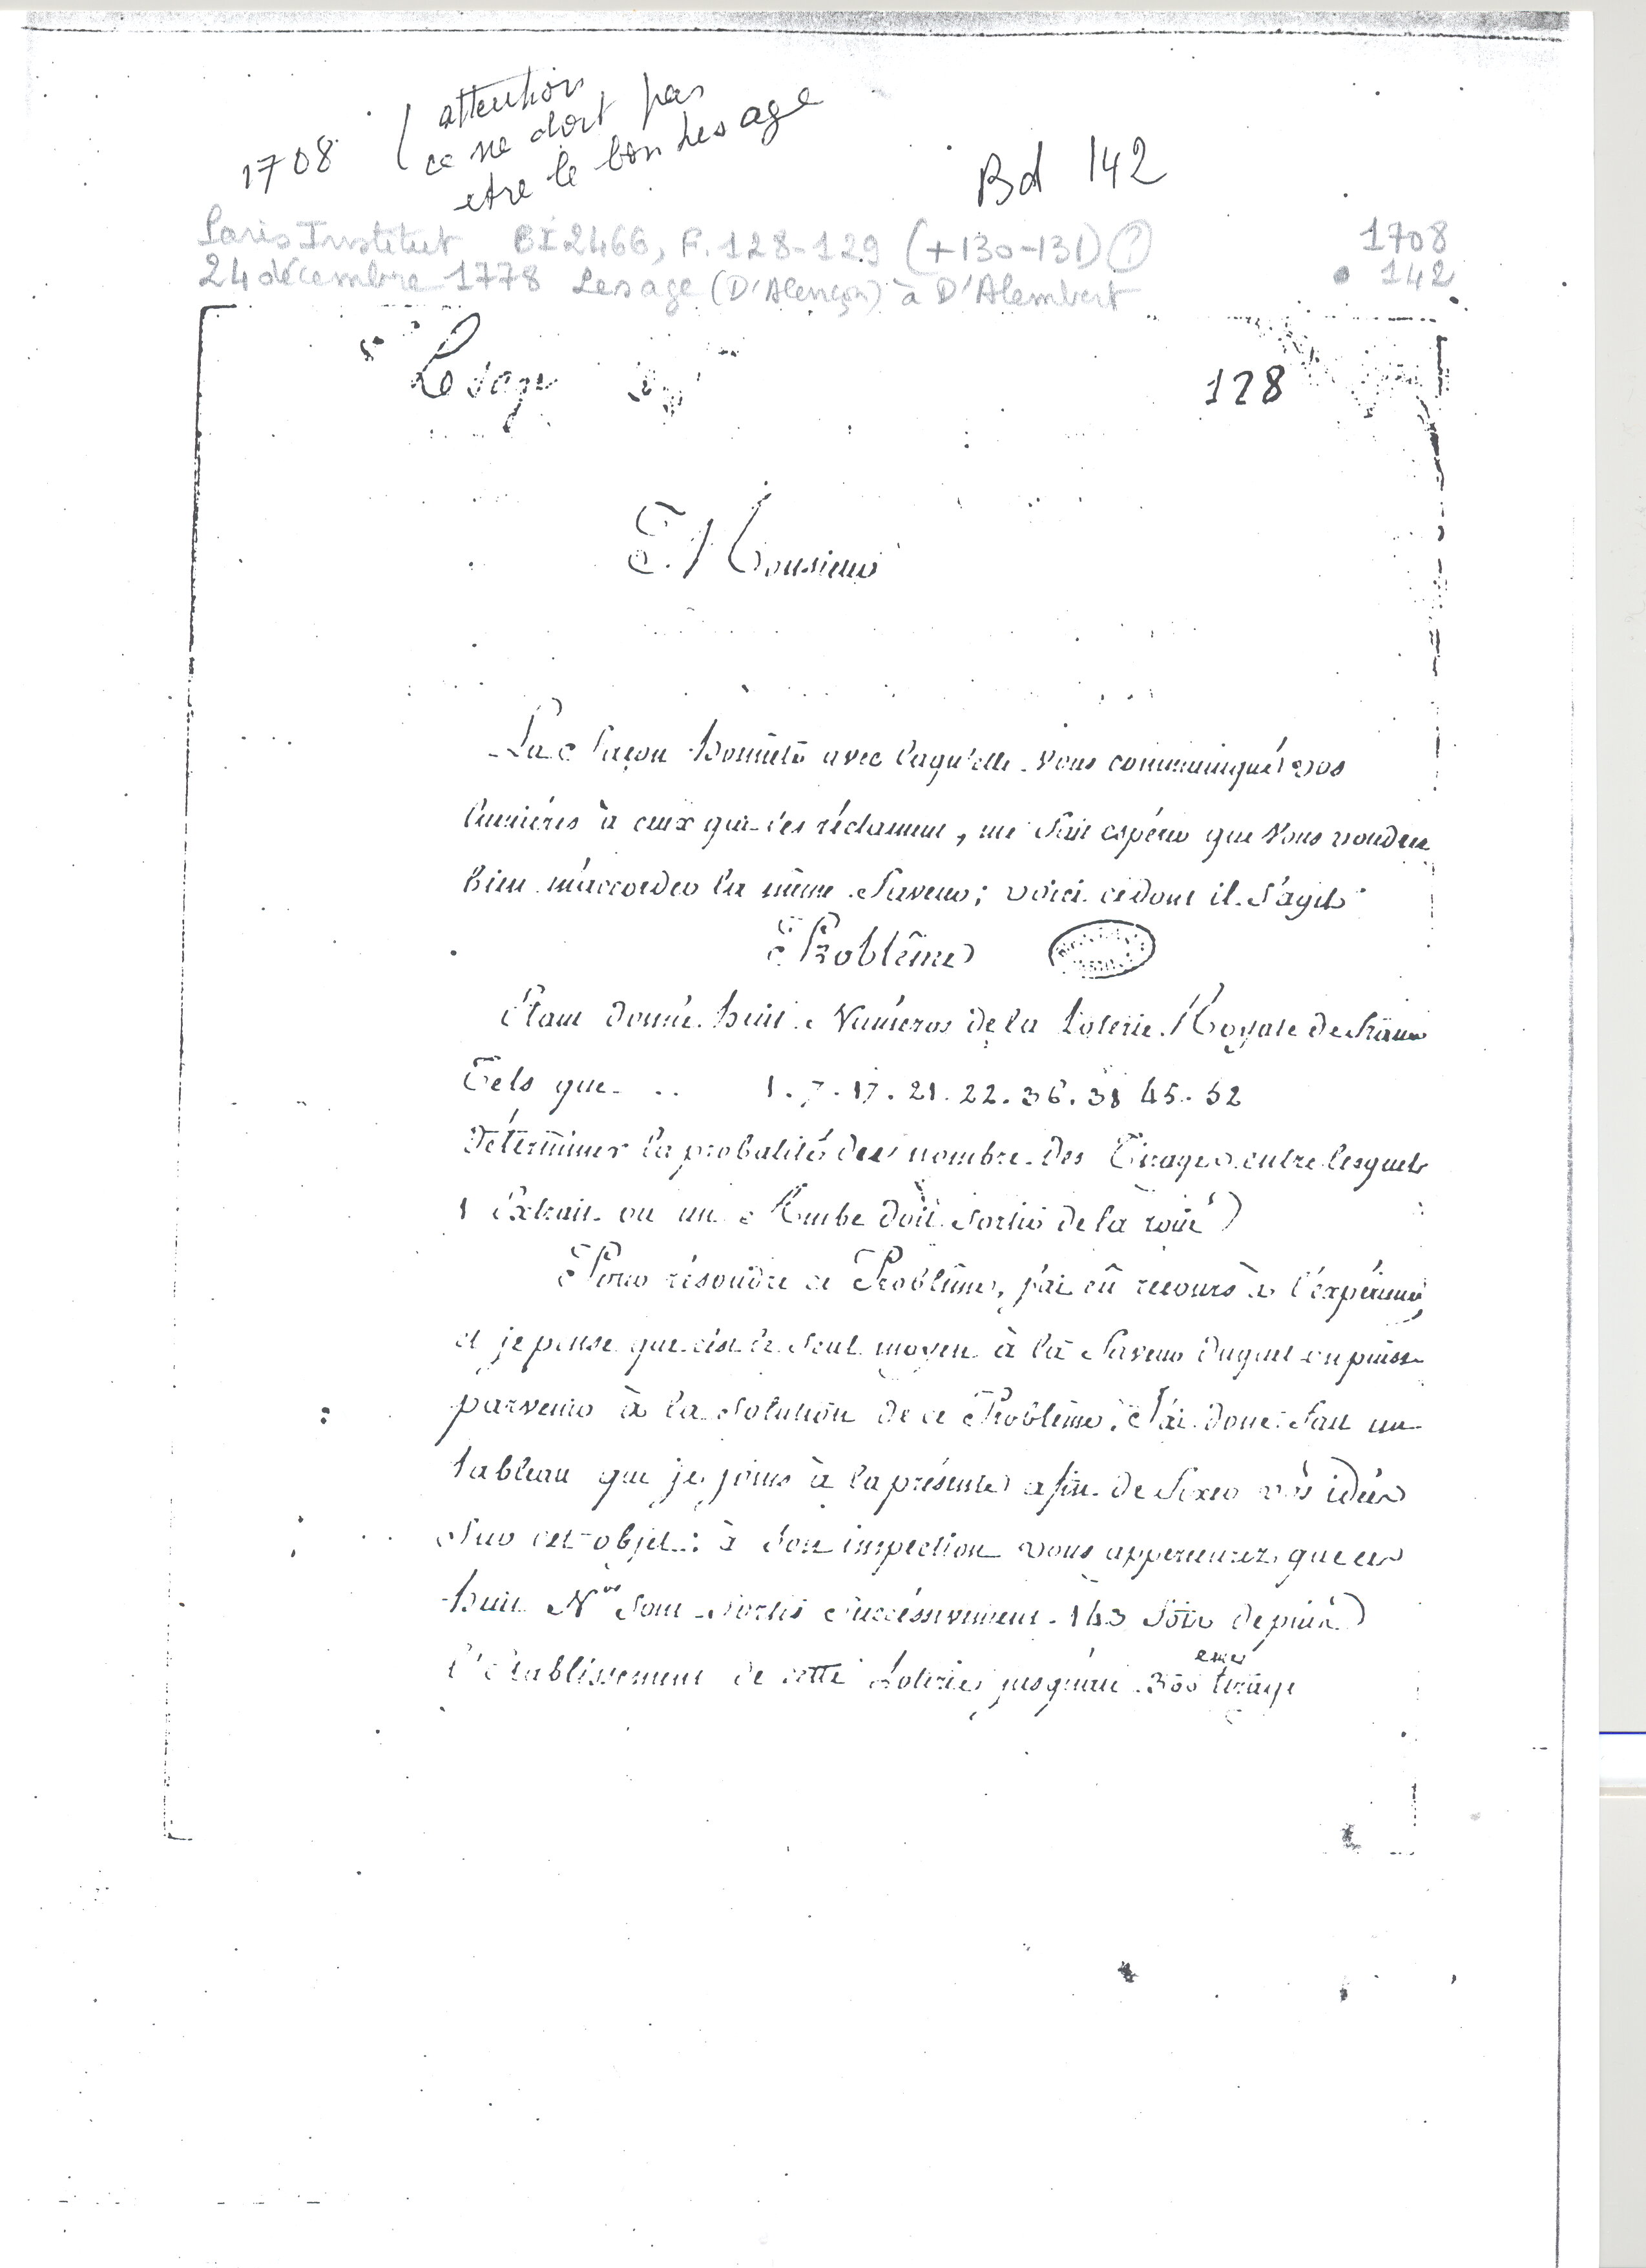 1708 ( attention
ce ne doit pas
etre le bon Lesage
Bd 142
Paris Institut BI 2466, F. 128-129 (+130-131) 1
1708
24 décembre 1778 Lesage (D'Alençon) à D'Alembert
142
Lesage
128
Monsieur
La façon honnête avec laqu'elle vous communiqués vos
lumières à ceux qui les réclament, me fait espérer que vous voudrez
bien m'accorder la même faveur; voici ce dont il s'agit
Problême
Étant donné huit Numéros de la Loterie Royale de France
Tels que .. 1. 7. 17. 21. 22. 36. 38 45. 52
Déterminer la probalité des nombre des Tirages entre lesquels
1 Extrait ou un Ambe doit sortir de la roue
Pour résoudre ce Problême, j'ai eû recours à l'expérience,
et je pense que c'est le seul moyen à la faveur duquel on puisse
parvenir à la solution de ce Problême. J'ai donc fait un
tableau que je joins à la présente afin de fixer vos idées
sur cet objet : à son inspection vous appercevrez que ces
huit Nos sont sortis successivement 143 fois depuis
l'établissement de cette Loterie jusqu'au 300 eme tirage